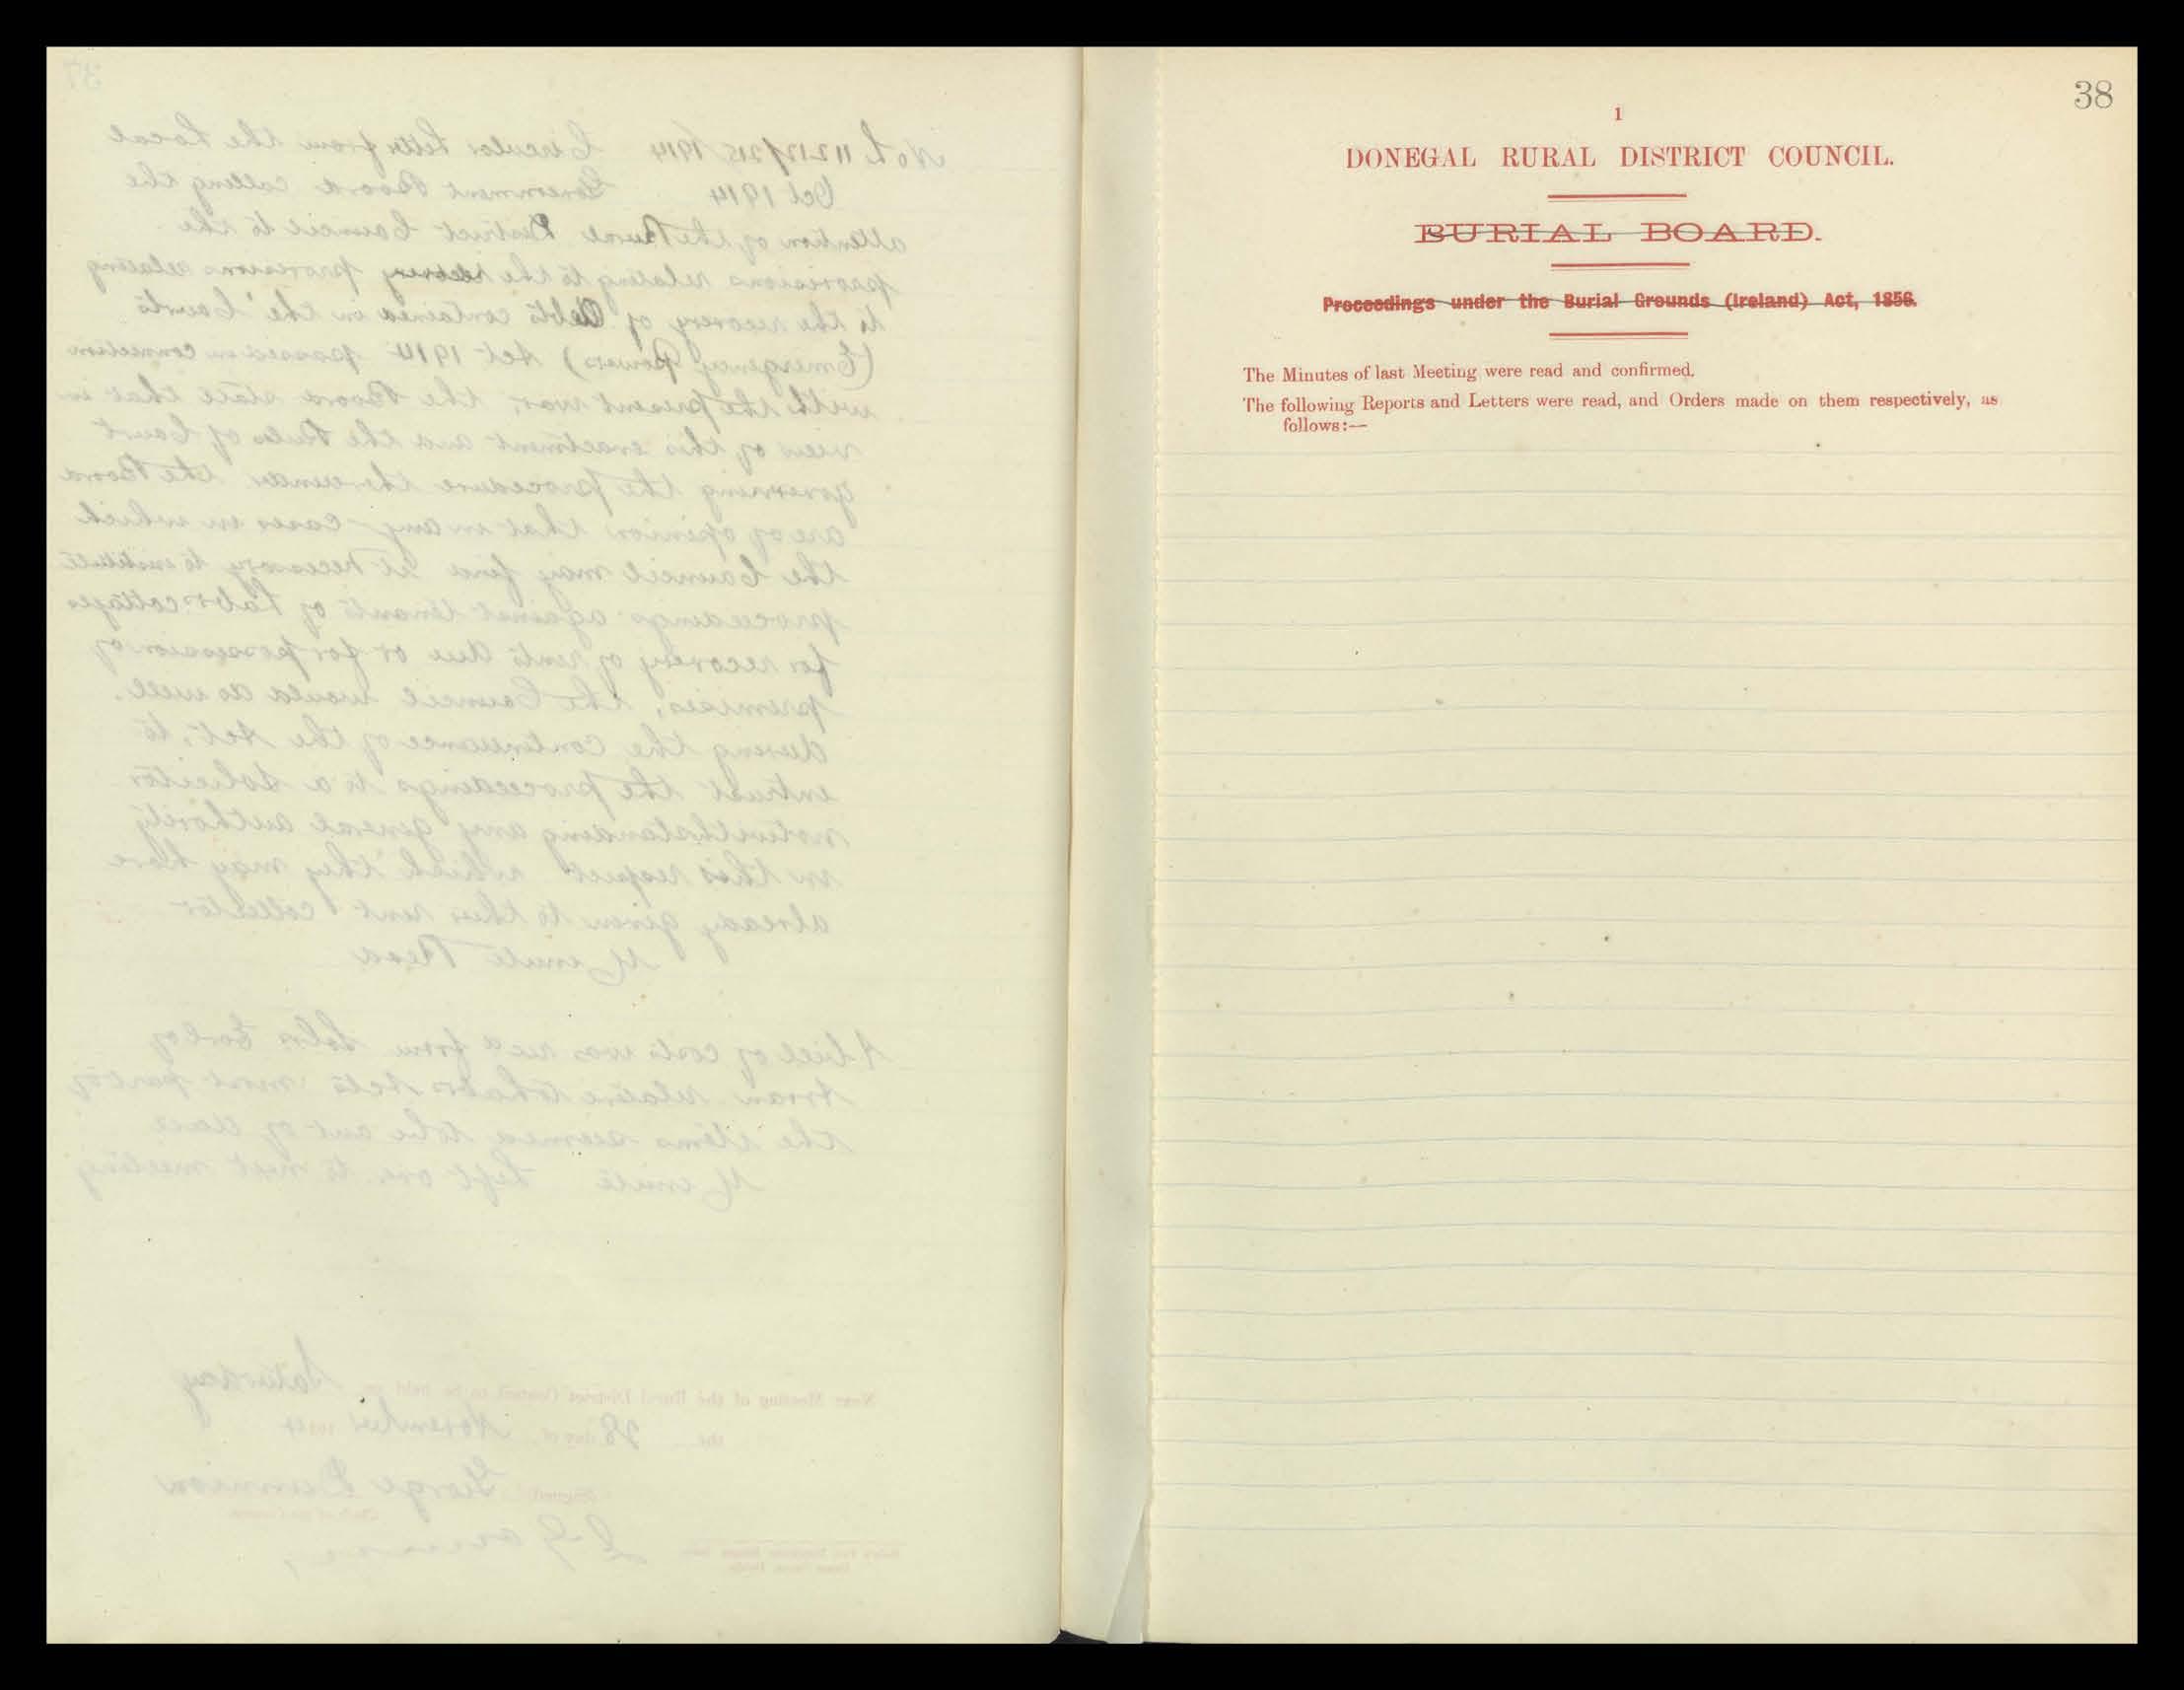 37
No L 11217/215/1914 Circular letter from the Local
Oct 1914 Government Board calling the
attention of the Rural District Council to the
provisions relating to the recovery provisions relating
to the recovery of debts contained in the Courts
(Emergency Powers) Act 1914 passed in connection
with the present war, the Board state that in
view of this enactment and the Rules of Court
governing the procedure thereunder the Board
are of opinion that in any cases in which
the Council may find it necessary to institute
proceedings against tenants of labor cottages
for recovery of rents due or for possession of
premises, the Council would do well,
during the continuance of the Act, to
entrust the proceedings to a solicitor
notwithstanding any general authority
in this respect which they may have
already given to their rent collector
Minute Read
A bill of costs was recd from John
relative to Labor Acts most part of
the items seemed to be out of date
Minute Left over to next meeting
Next Meeting of the Rural District Council to be held on Saturday
the 28 day of November 1914
Signed, George Dunnion
38
1
DONEGAL RURAL DISTRICT COUNCIL.
BURIAL BOARD.
Proceedings under the Burial Grounds (Ireland) Act, 1856.
The Minutes of last Meeting were read and confirmed.
The following Reports and Letters were read, and Orders made on them respectively, as
follows:—